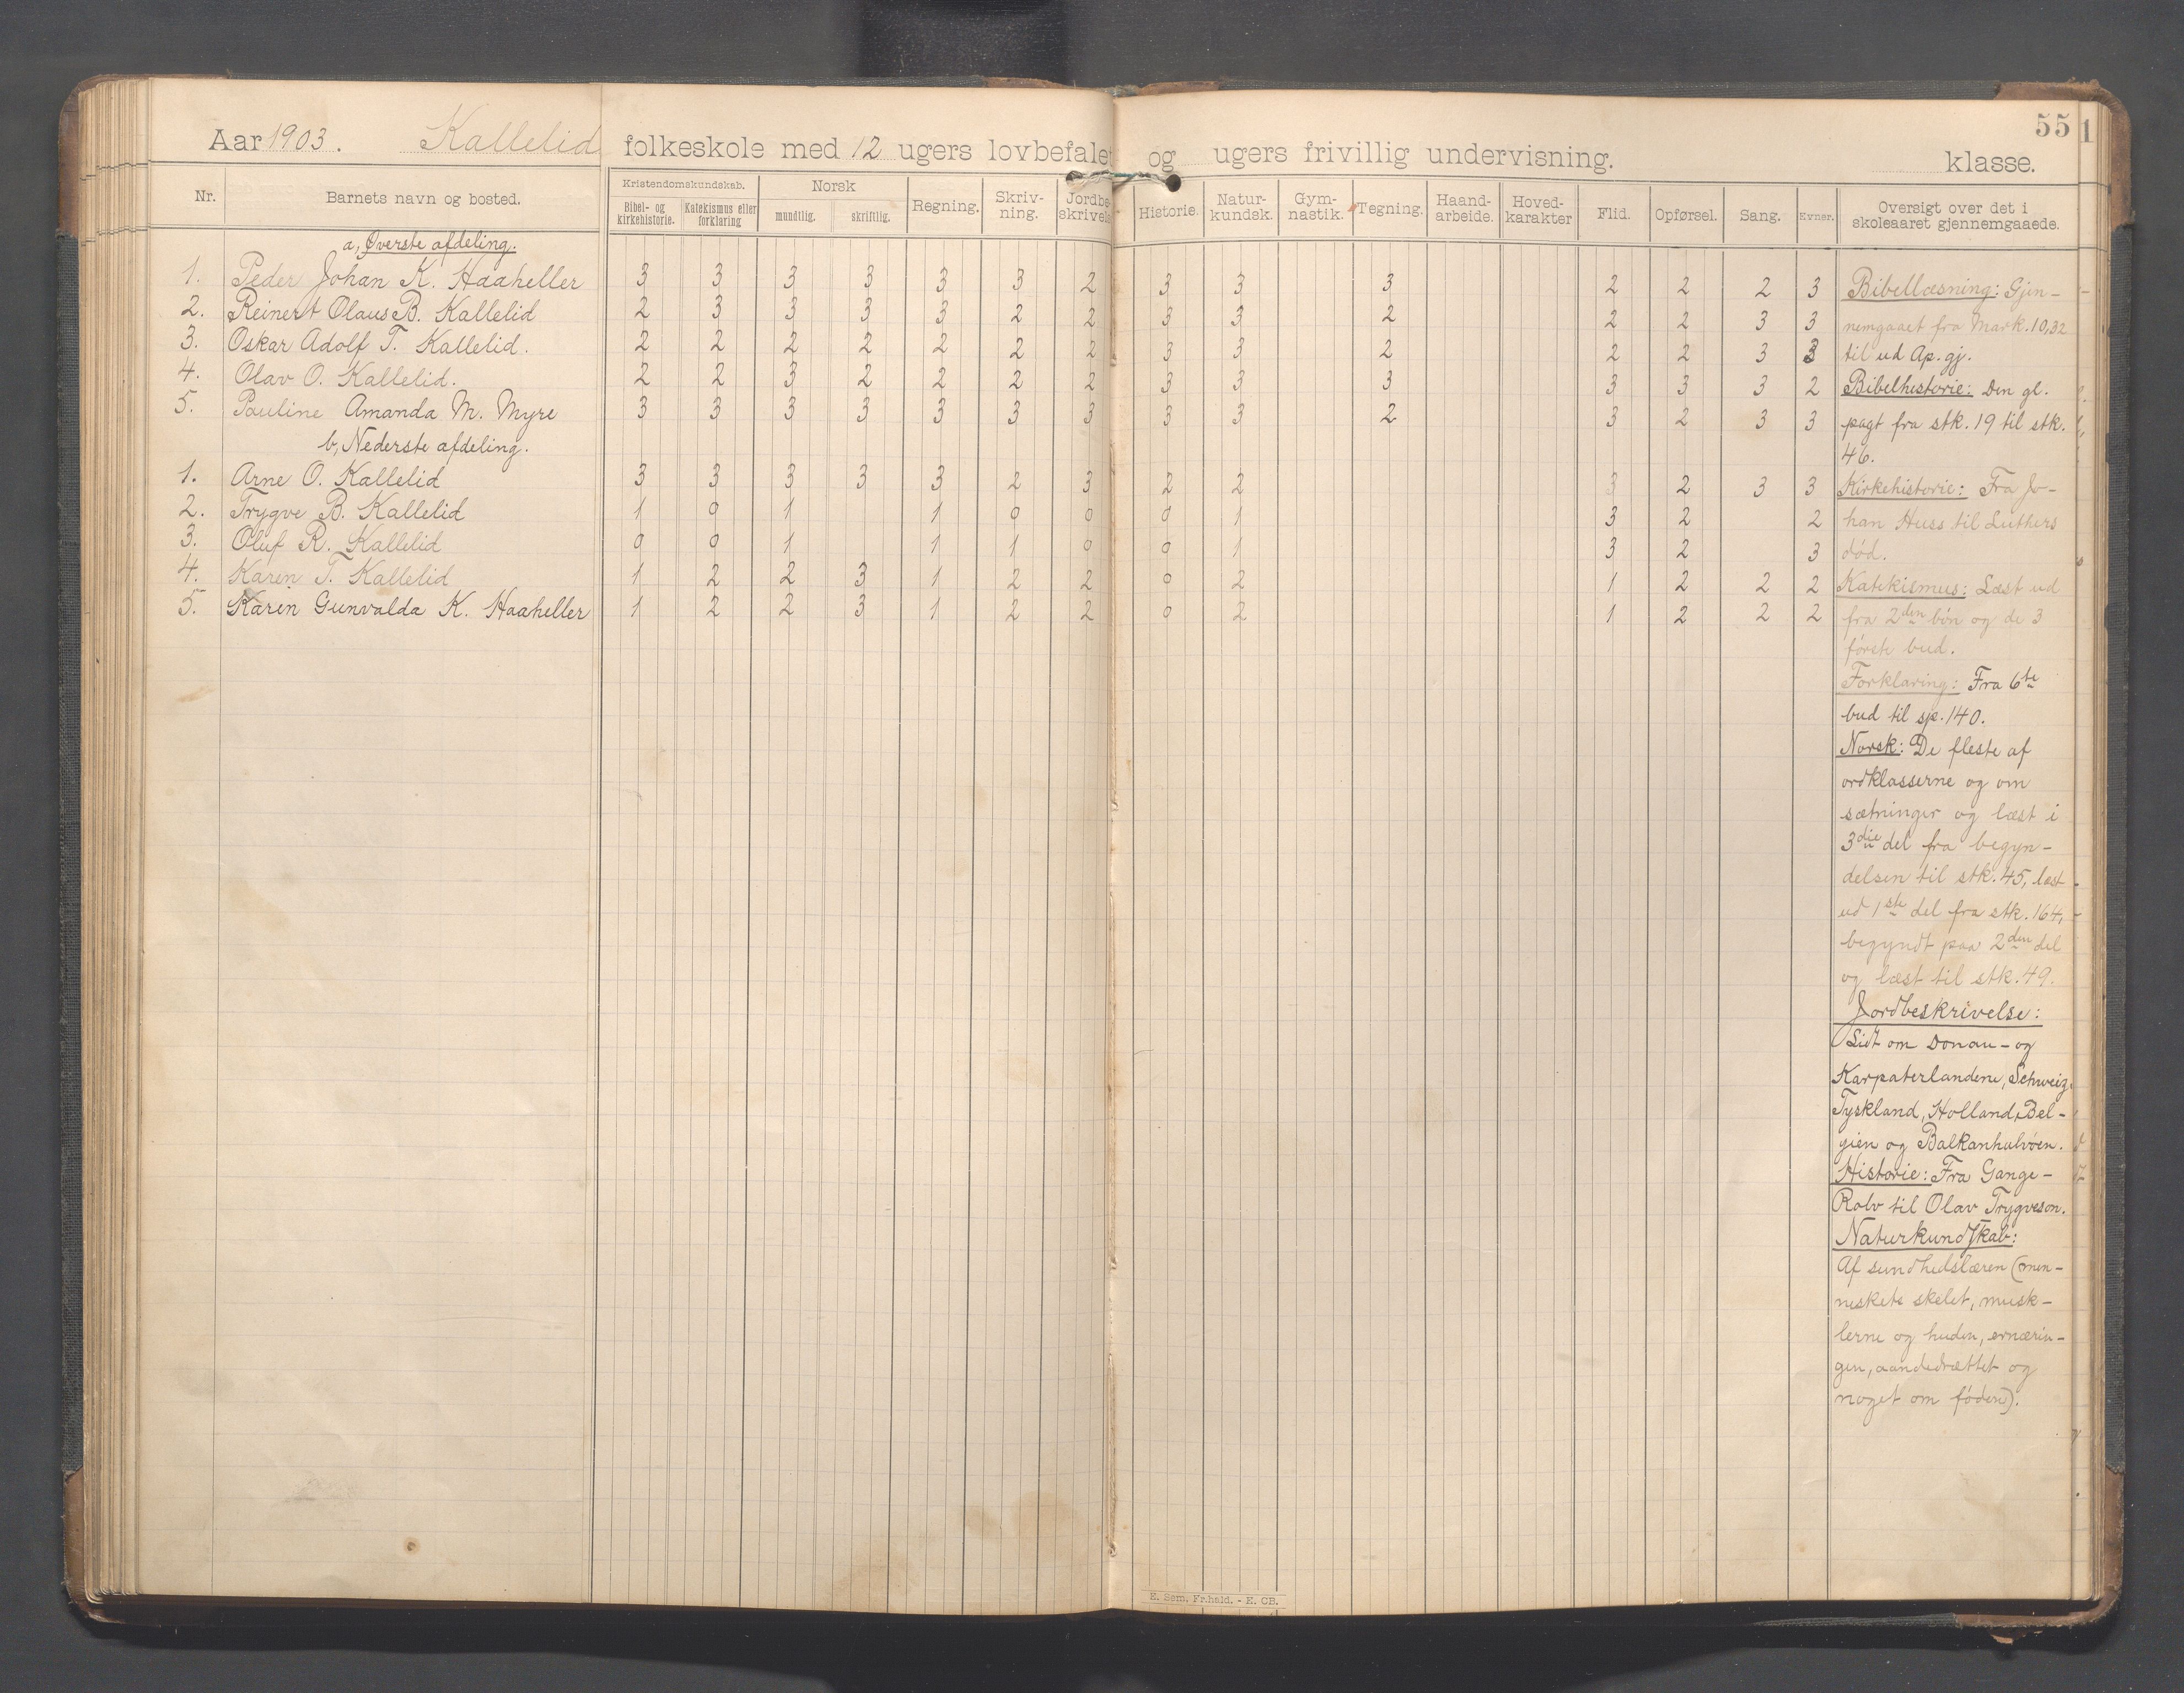 55
1
Aar 1903. Kallelid folkeskole med 12 ugers lovbefalet og ugers frivillig undervisning. klasse.
Nr. Barnets navn og bosted. Kristendomskundskab. Bibel- og kirkehistorie. Katekismus eller forklaring Norsk mundtlig. skriftlig. Regning. Skriv-ning. Jordbe-skrivels Historie. Natur-kundsk. Gym-nastik. Tegning. Haand-arbeide. Hoved-karakter Flid. Opførsel. Sang. Evner. Oversigt over det i skoleaaret gjennemgaaede.
a, Øverste afdeling.
1. Peder Johan K. Haaheller 3 3 3 3 3 3 2 3 3 3 2 2 2 3
2. Reinert Olaus B. Kallelid 2 3 3 3 3 2 2 3 3 2 2 2 3 3
3. Oskar Adolf T. Kallelid. 2 2 2 2 2 2 2 3 3 2 2 2 3 3
4. Olav O. Kallelid. 2 2 3 2 2 2 2 3 3 3 3 3 3 2
5. Pauline Amanda M. Myre 3 3 3 3 3 3 3 3 3 2 3 2 3 3
b, Nederste afdeling.
1. Arne O. Kallelid 3 3 3 3 3 2 3 2 2 3 2 3 3
2. Trygve B. Kallelid 1 0 1 1 0 0 0 1 3 2 2
3. Oluf R. Kallelid 0 0 1 1 1 0 0 1 3 2 3
4. Karen T. Kallelid 1 2 2 3 1 2 2 0 2 1 2 2 2
5. Karin Gunvalda K. Haaheller 1 2 2 3 1 2 2 0 2 1 2 2 2
Bibellæsning: Gjen-
nemgaaet fra Mark. 10,32
til ud Ap. gj.
Bibelhistorie: Den gl.
pagt fra stk. 19 til stk.
46.
Kirkehistorie: Fra Jo-
han Huss til Luthers
død.
Katekismus: Læst ud
fra 2den bøn og de 3
første bud.
Forklaring: Fra 6te
bud til sp. 140.
Norsk: De fleste af
ordklasserne og om
sætninger og læst i
3die del fra begyn-
delsen til stk. 45, læst
ud 1ste del fra stk. 164,
begyndt paa 2den del
og læst til stk. 49.
Jordbeskrivelse:
Lidt om Donau- og
Karpaterlandene, Schweiz,
Tyskland, Holland, Bel-
gien og Balkanhalvøen.
Historie: Fra Gange-
Rolv til Olav Trygveson.
Naturkundskab:
Af sundhedslæren (men-
neskets skelet, musk-
lerne og huden, ernærin-
gen, aandedrættet og
noget om føden).
E. Sem. Fr.hald. - E. CB.